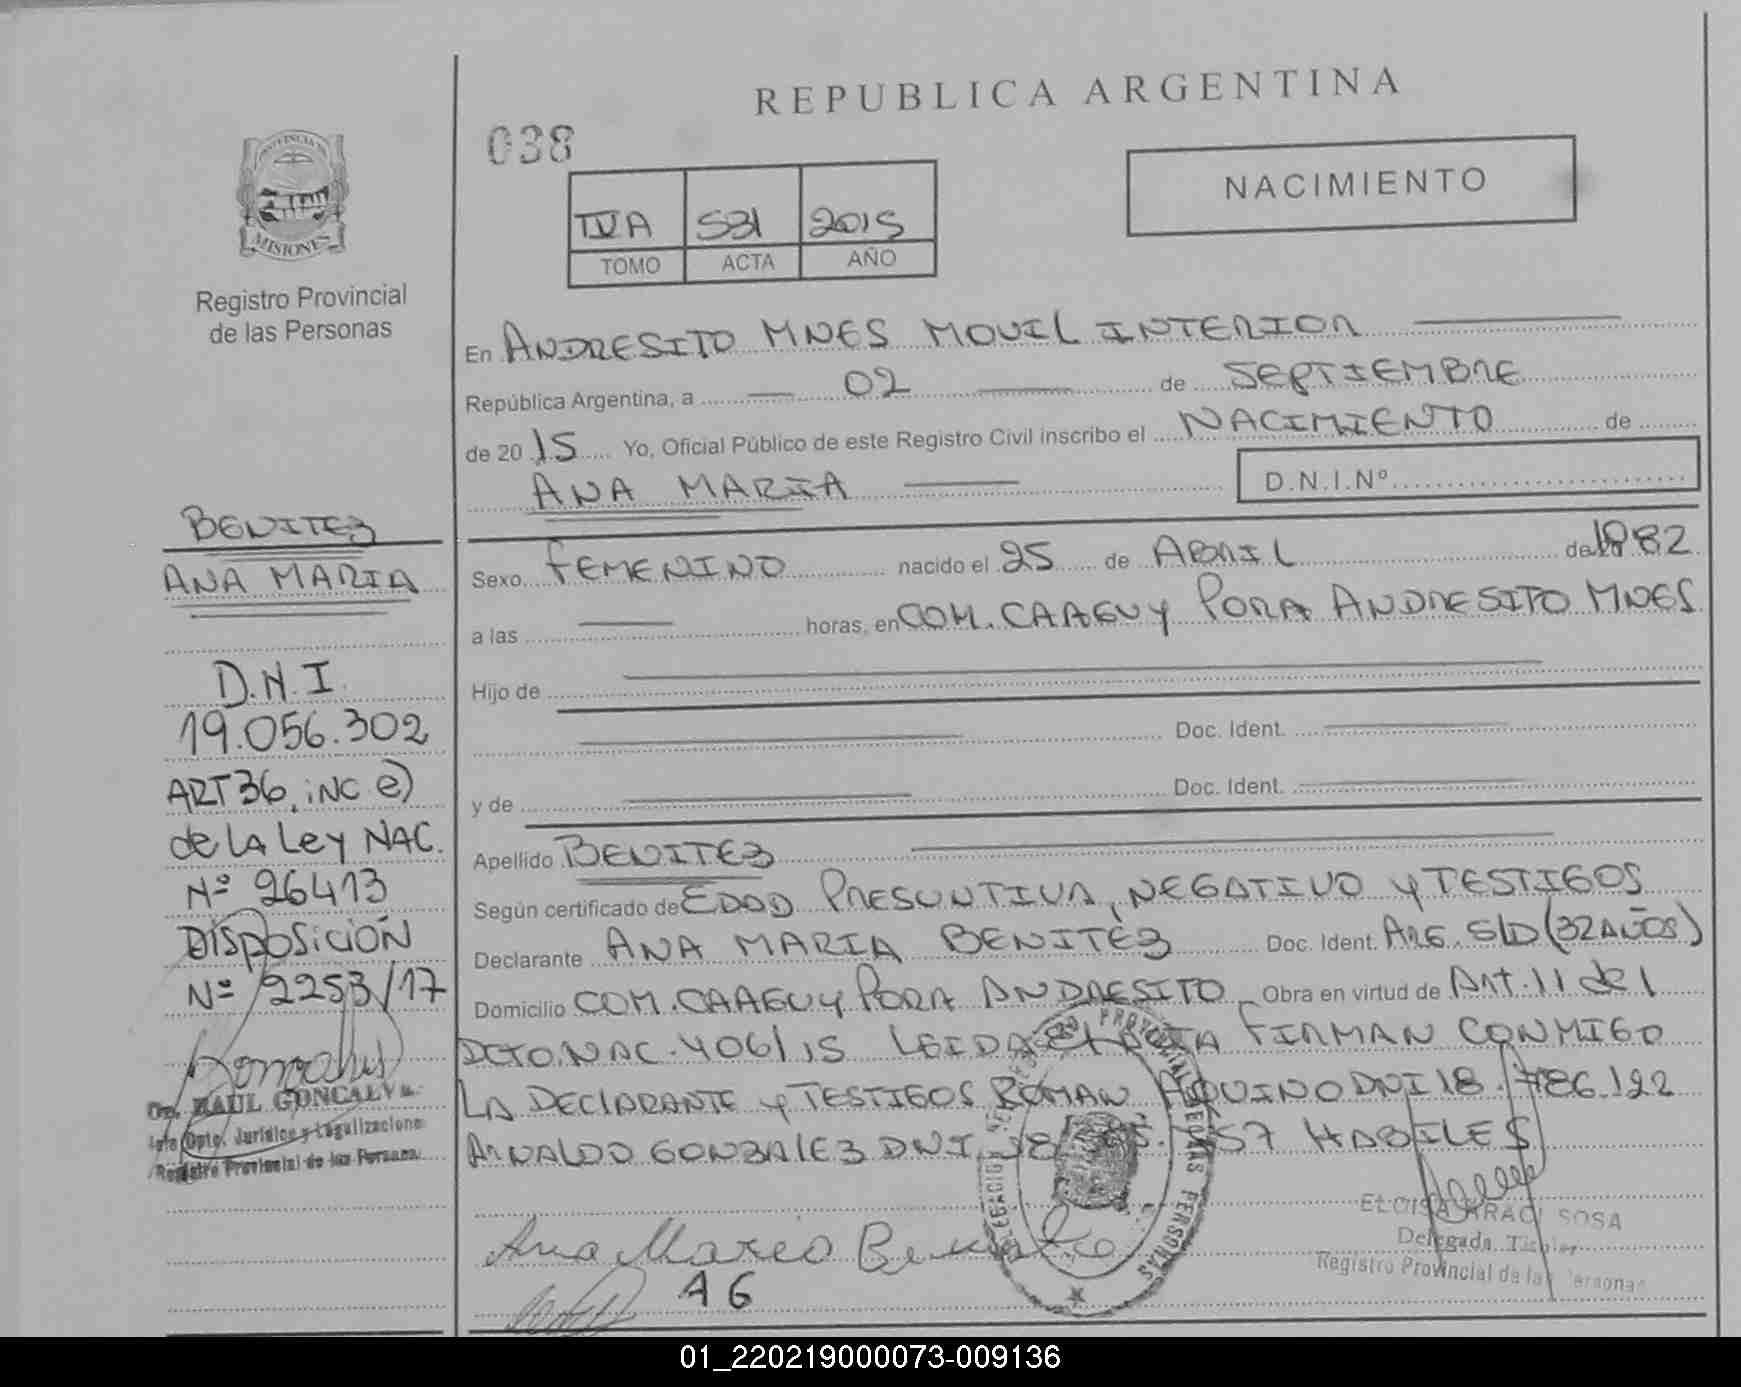 REPUBLICA ARGENTINA
038
NACIMIENTO
IVA 531 2015
TOMO ACTA AÑO
PROVINCIA
MISIONES
Registro Provincial
de las Personas
BENITEZ
ANA MARIA
D.N.I.
19.056.302
ART 36, iNC e)
de LA Ley NAC.
Nº 26413
DISPOSICIÓN
Nº 2253/17
RAUL GONCALVES
Jefe Dpto. Jurídico y Legalizaciones
Registro Provincial de las Personas
En ANDRESITO MNES MOVIL INTERIOR
República Argentina, a 02 de SEPTIEMBRE
de 20 15 Yo, Oficial Público de este Registro Civil inscribo el NACIMIENTO de
ANA MARIA D.N.I.Nº
Sexo FEMENINO nacido el 25 de ABRIL de 1982
a las horas, en COM. CAAGUY PORA ANDRESITO MNES
Hijo de
Doc. Ident.
y de Doc. Ident.
Apellido BENITEZ
Según certificado de EDAD PRESUNTIVA, NEGATIVO y TESTIGOS
Declarante ANA MARIA BENITEZ Doc. Ident. ARG. S/D (32 AÑOS)
Domicilio COM. CAAGUY PORA ANDRESITO Obra en virtud de Art. 11 del
DCTO. NAC. 406/15 LEIDA EL ACTA FIRMAN CONMIGO
LA DECLARANTE y TESTIGOS ROMAN AQUINO DNI 18.786.122
ARNALDO GONZALEZ DNI 557 HABILES
Ana Maria Benitez
A G
ELOISA ARACI SOSA
Delegada Titular
Registro Provincial de las Personas
01_220219000073-009136